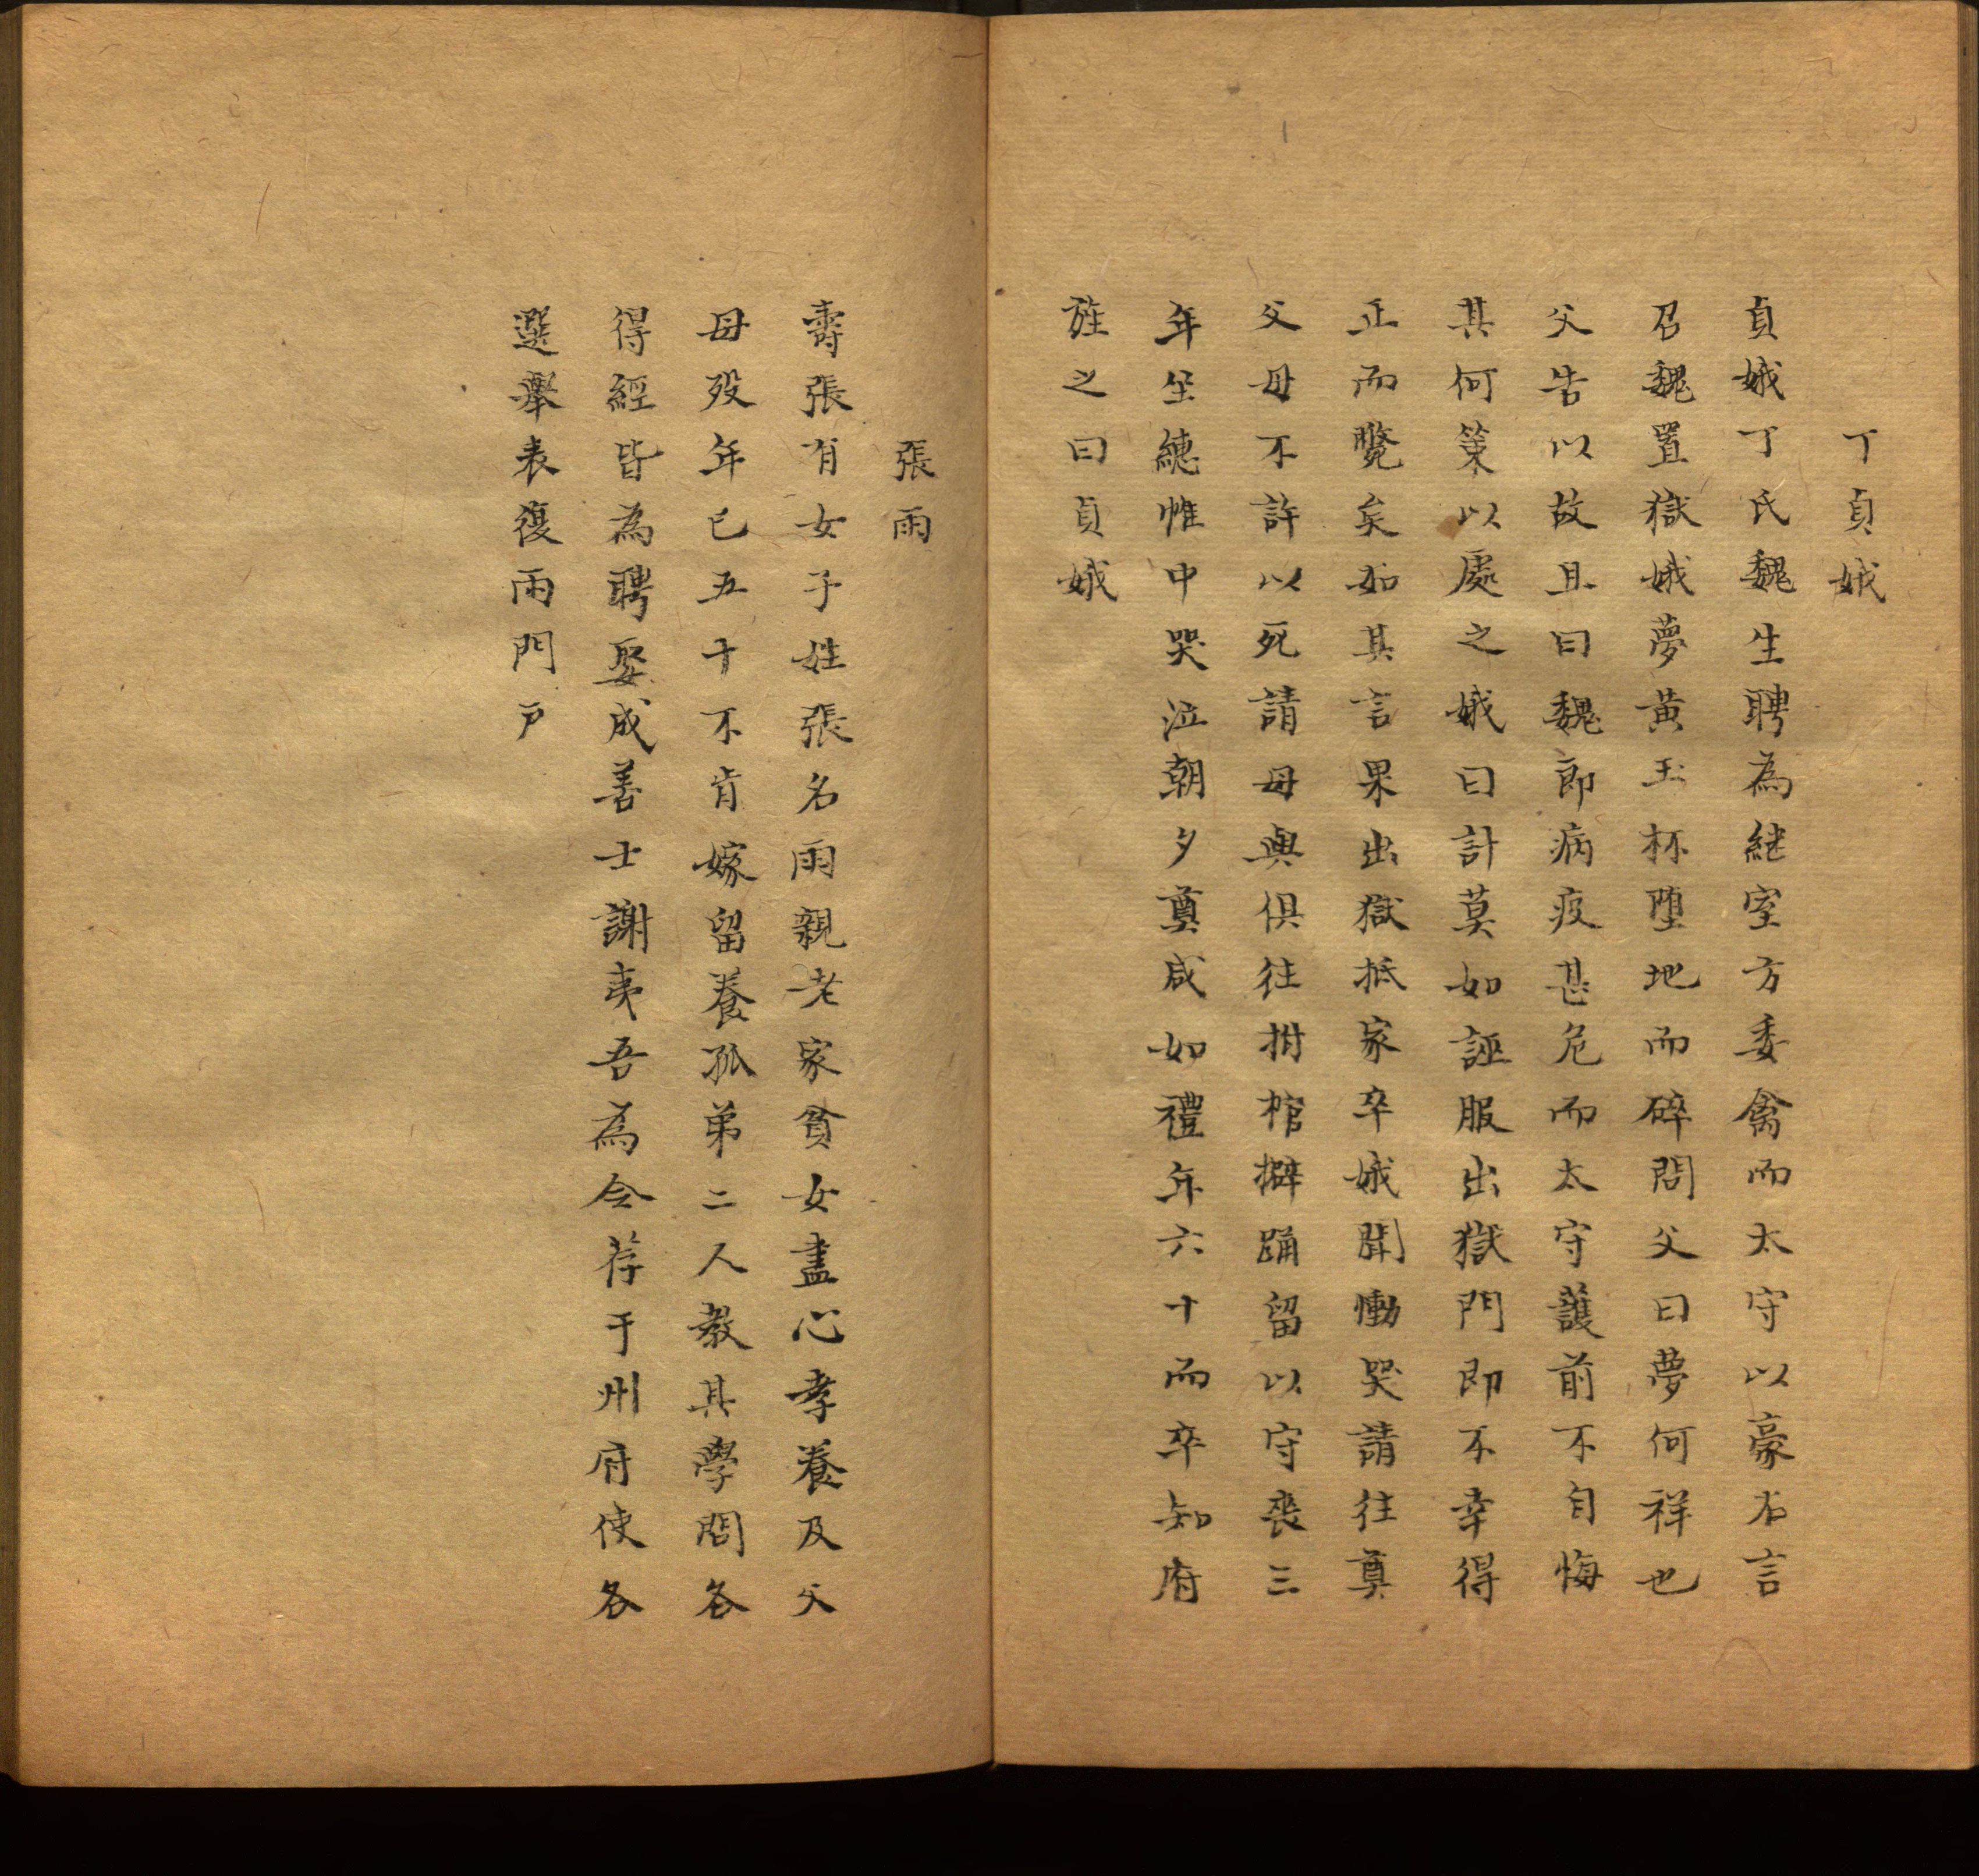 丁貞娥
貞娥丁氏魏生聘為継室方委禽而太守以豪右言
召魏置獄娥夢黃玉杯墮地而碎問父曰夢何祥也
父告以故且曰魏郎病疫甚危而太守護前不自悔
其何策以處之娥曰計莫如誣服出獄門即不幸得
正而斃矣如其言果出獄抵家卒娥聞慟哭請往奠
父母不許以死請母與俱往拊棺擗踊留以守喪三
年坐繐帷中哭泣朝夕奠咸如禮年六十而卒知府
旌之曰貞娥
張雨
壽張有女子姓張名雨親老家貧女盡心孝養及父
母歿年已五十不肯嫁留養孤弟二人教其學問各
得經皆為聘娶成善士謝夷吾為令荐于州府使各
選舉表復雨門戸